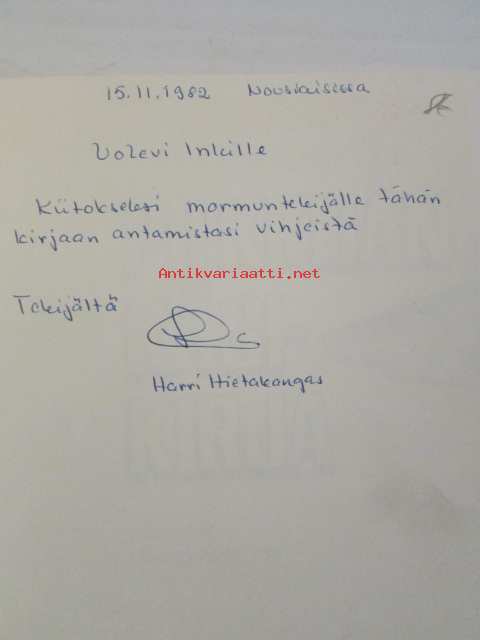 15.11.1982 Nousiaisissa
Uolevi Inkille
Kiitokseksi mormuntekijälle tähän
kirjaan antamistasi vihjeistä
Antikvariaatti.net
Tekijältä
Harri Hietakangas